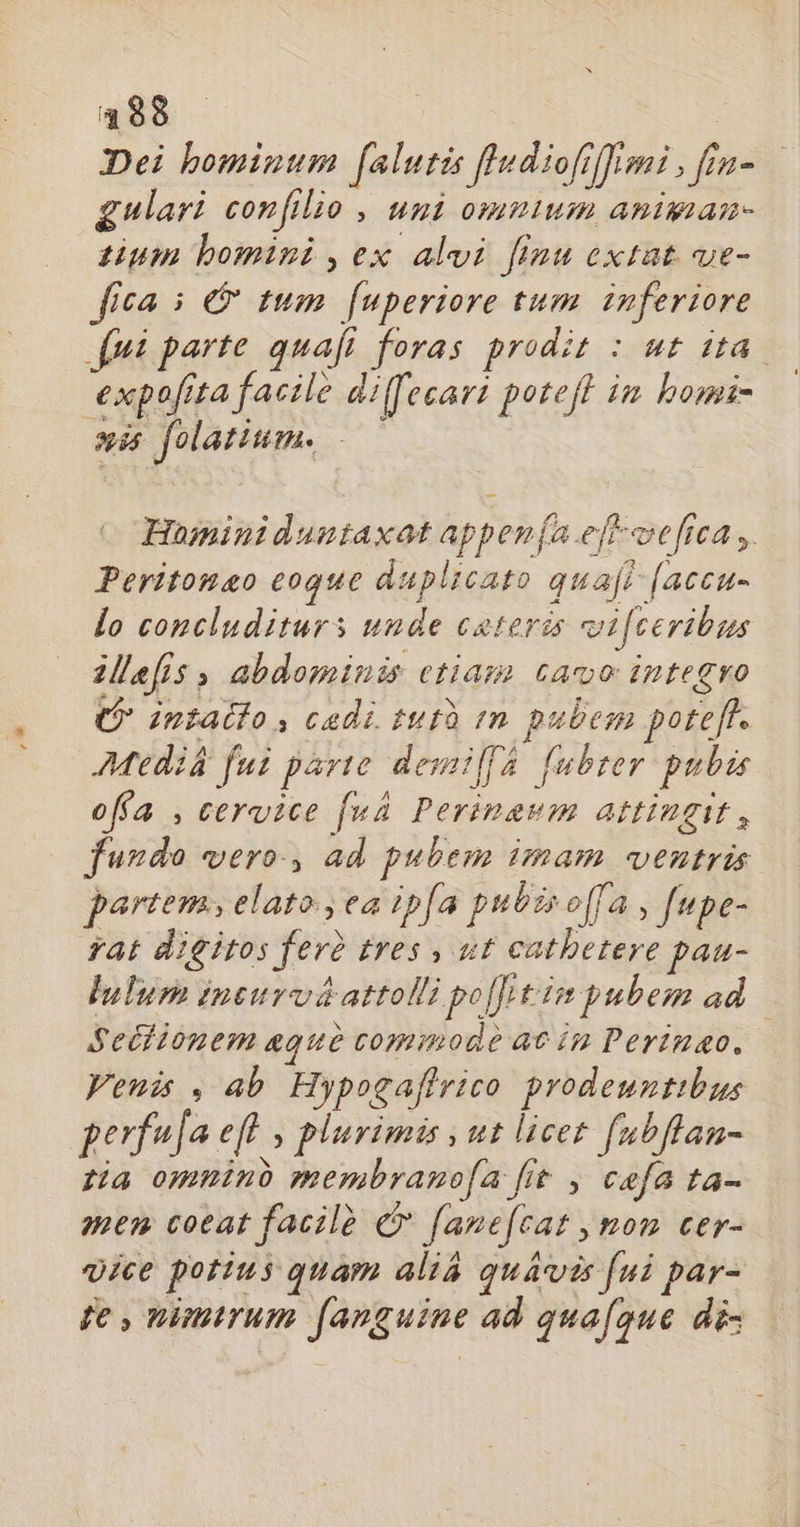 188
Dei hominum ſalutis ſtudioſiſſimi, ſin-
gulari conſilio, uni omnium animan-
tium homini, ex alvi ſinu extat ve-
ſica; & tum ſuperiore tum inferiore
ſui parte quaſi foras prodit: ut ita
expoſita facilè diſſecari poteſt in homi-
nis ſolatium.
Homini duntaxat appenſa eſt veſica,
Peritonæo eoque duplicato quaſi ſaccu-
lo concluditur; unde cæteris viſceribus
illæſis, abdominis etiam cavo integro
& intacto, cædi tutò in pubem poteſt.
Mediâ ſui parte demiſſâ ſubter pubis
oſſa, cervice ſuâ Perinæum attingit,
fundo vero, ad pubem imam ventris
partem, elato, ea ipſa pubis oſſa, ſupe-
rat digitos ferè tres, ut cathetere pau-
lulum incurvâ attolli poſſit in pubem ad
Sectionem æquè commodè ac in Perinæo.
Venis, ab Hypogaſtrico prodeuntibus
perfuſa eſt, plurimis, ut licet ſubſtan-
tia omninò membranoſa ſit, cæſa ta-
men coeat facilè & ſaneſcat, non cer-
vice potius quàm aliâ quâvis ſui par-
te, nimirum ſanguine ad quaſque di-